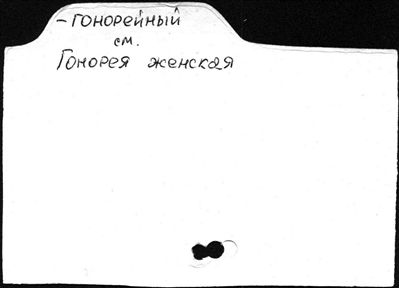 - гонорейный
см.
Гонорея женская